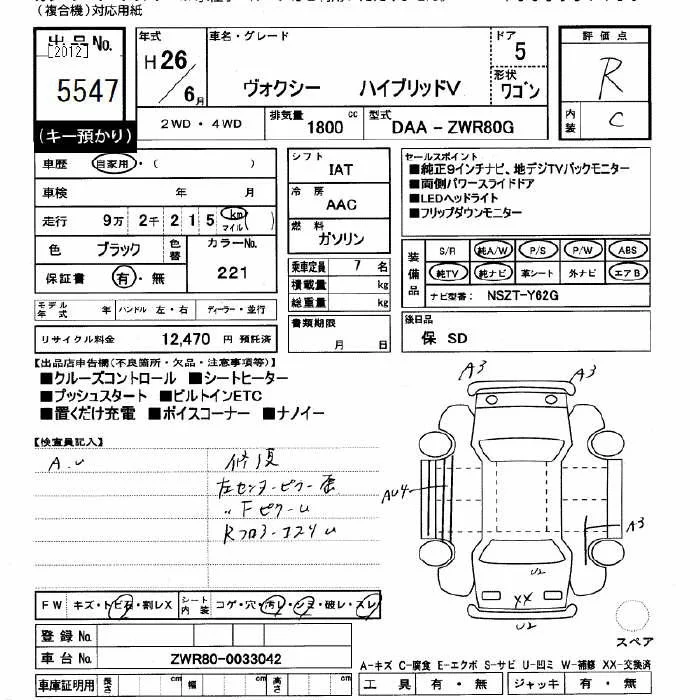 (複合機)対応用紙
出品No.
[2012]
5547
(キー預かり)
年式
H 26/6月
車名・グレード
ヴォクシー ハイブリッドV
ドア
5
形状
ワゴン
評価点
R
内装
C
2WD・4WD
排気量
1800 cc
型式
DAA-ZWR80G
車歴 自家用・( )
車検 年 月
走行 9万 2千 2 1 5 km マイル( )
色 ブラック 色替
カラーNo.
221
保証書 有・無
シフト
IAT
冷房
AAC
燃料
ガソリン
乗車定員 7 名
積載量 kg
総重量 kg
書類期限
月 日
セールスポイント
■純正9インチナビ、地デジTVバックモニター
■両側パワースライドドア
■LEDヘッドライト
■フリップダウンモニター
装備品
S/R 純A/W P/S P/W ABS
純TV 純ナビ 革シート 外ナビ エアB
ナビ型番: NSZT-Y62G
モデル年式 年 ハンドル 左・右 ディーラー・並行
リサイクル料金 12,470 円 預託済
後日品
保 SD
【出品店申告欄(不良箇所・欠品・注意事項等)】
■クルーズコントロール ■シートヒーター
■プッシュスタート ■ビルトインETC
■置くだけ充電 ■ボイスコーナー ■ナノイー
【検査員記入】
A.U
修復
左センターピラー
〃 FピラーU
A3
A3
AU4
A3
U2
XX
U2
FW キズ・トビ石・割レX
シート内装 コゲ・穴・汚レ・シミ・破レ・スレ
登録No.
車台No. ZWR80-0033042
車庫証明用 長さ cm 幅 cm 高さ cm
スペア
A-キズ C-腐食 E-エクボ S-サビ U-凹ミ W-補修 XX-交換済
工具 有・無 ジャッキ 有・無